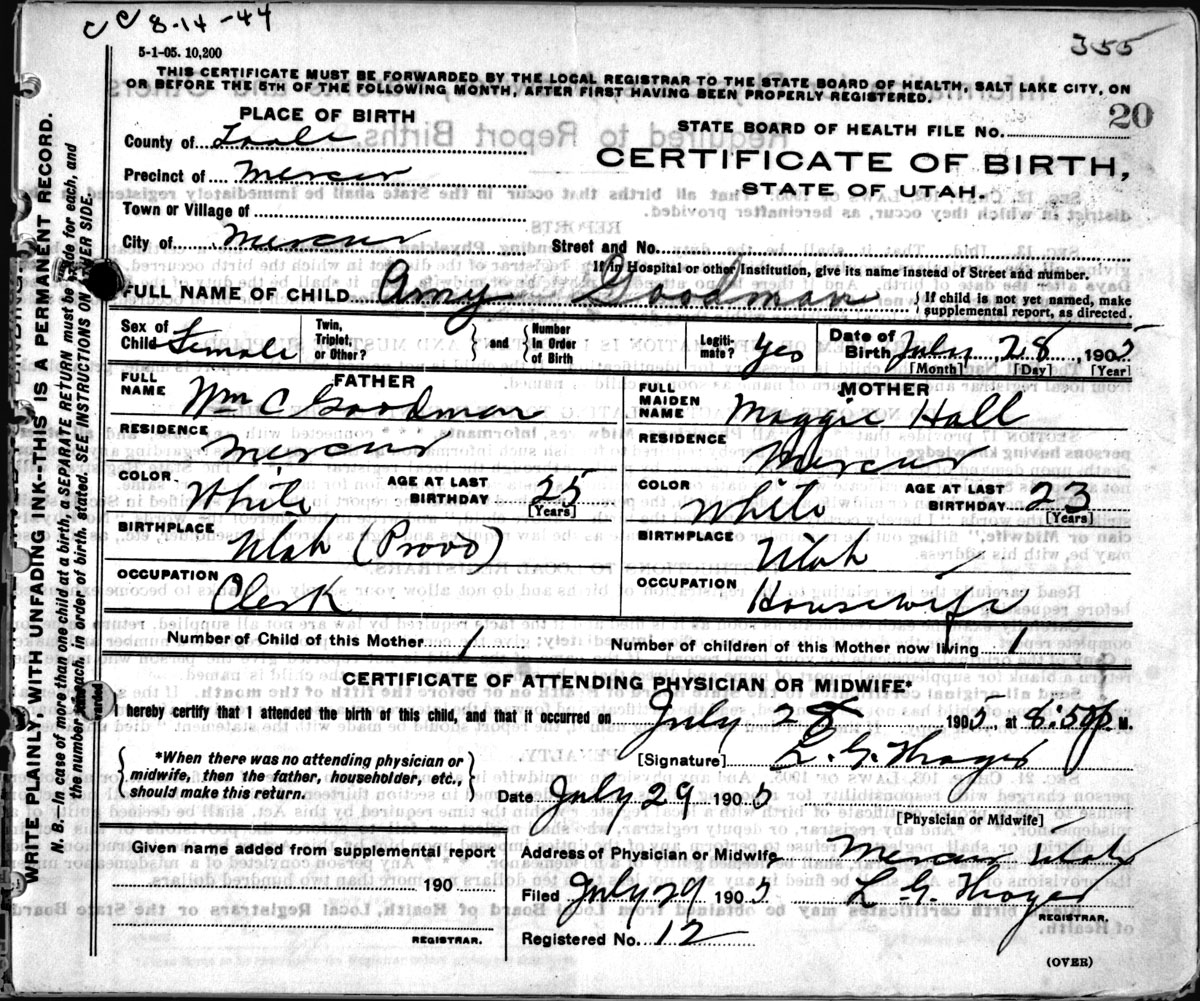 8-14-44
355
5-1-05. 10,200
THIS CERTIFICATE MUST BE FORWARDED BY THE LOCAL REGISTRAR TO THE STATE BOARD OF HEALTH, SALT LAKE CITY, ON
OR BEFORE THE 5TH OF THE FOLLOWING MONTH, AFTER FIRST HAVING BEEN PROPERLY REGISTERED.
PLACE OF BIRTH
STATE BOARD OF HEALTH FILE NO. 20
County of Tooele
CERTIFICATE OF BIRTH,
Precinct of Mercur
STATE OF UTAH.
Town or Village of
City of Mercur Street and No.
If in Hospital or other Institution, give its name instead of Street and number.
FULL NAME OF CHILD Amy Goodman { If child is not yet named, make
supplemental report, as directed.
Sex of Child Female Twin, Triplet, or Other? } and { Number in Order of Birth Legiti- mate? yes Date of Birth July 28, 1905
[Month] [Day] [Year]
FATHER MOTHER
FULL NAME Wm C Goodman FULL MAIDEN NAME Maggie Hall
RESIDENCE Mercur RESIDENCE Mercur
COLOR White AGE AT LAST BIRTHDAY 25 COLOR White AGE AT LAST BIRTHDAY 23
[Years] [Years]
BIRTHPLACE Utah (Provo) BIRTHPLACE Utah
OCCUPATION Clerk OCCUPATION Housewife
Number of Child of this Mother 1 Number of children of this Mother now living 1
CERTIFICATE OF ATTENDING PHYSICIAN OR MIDWIFE*
I hereby certify that I attended the birth of this child, and that it occurred on July 28 1905 at 8:50 P. M.
*When there was no attending physician or
midwife, then the father, householder, etc.,
should make this return.
[Signature] L. G.
Date July 29 1905
[Physician or Midwife]
Given name added from supplemental report
190
REGISTRAR.
Address of Physician or Midwife Mercur Utah
Filed July 29 1905 L. G.
REGISTRAR.
Registered No. 12
(OVER)
WRITE PLAINLY, WITH UNFADING INK--THIS IS A PERMANENT RECORD.
N. B.--In case of more than one child at a birth, a SEPARATE RETURN must be made for each, and
the number of each, in order of birth, stated. SEE INSTRUCTIONS ON OTHER SIDE.